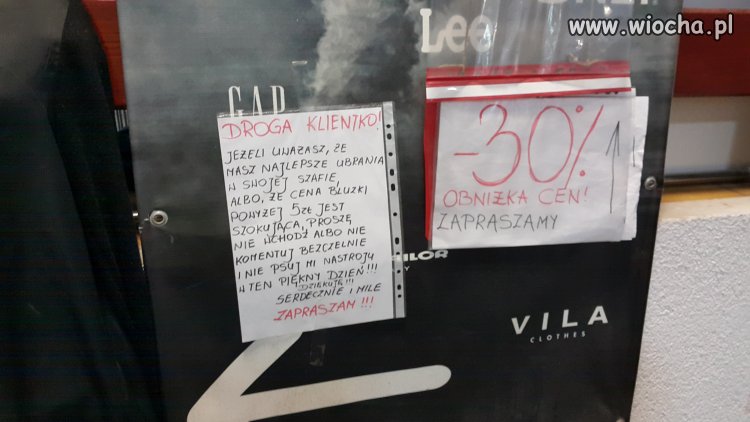 www.wiocha.pl
Lee
GAP
DROGA KLIENTKO!
JEŻELI UWAŻASZ, ŻE
MASZ NAJLEPSZE UBRANIA
W SWOJEJ SZAFIE,
ALBO, ŻE CENA BLUZKI
POWYŻEJ 5zł JEST
SZOKUJĄCA, PROSZĘ
NIE WCHODŹ ALBO NIE
KOMENTUJ BEZCZELNIE
I NIE PSUJ MI NASTROJU
W TEN PIĘKNY DZIEŃ!!!
DZIĘKUJĘ!!!
SERDECZNIE I MILE
ZAPRASZAM!!!
-30%
OBNIŻKA CEN!
ZAPRASZAMY
VILA
CLOTHES